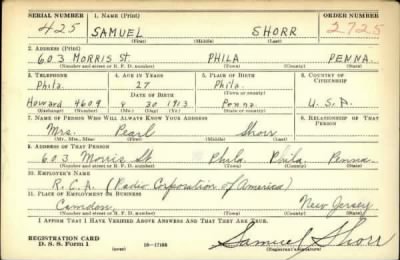 SERIAL NUMBER 1. NAME (Print) ORDER NUMBER
425 SAMUEL SHORR 2725
(First) (Middle) (Last)
2. ADDRESS (Print)
603 MORRIS St PHILA PENNA.
(Number and street or R. F. D. number) (Town) (County) (State)
3. TELEPHONE 4. AGE IN YEARS 5. PLACE OF BIRTH 6. COUNTRY OF CITIZENSHIP
Phila. 27 Phila.
DATE OF BIRTH (Town or county)
Howard 4609 30 1913 Penna U. S. A.
(Exchange) (Number) (Mo.) (Day) (Yr.) (State or country)
7. NAME OF PERSON WHO WILL ALWAYS KNOW YOUR ADDRESS 8. RELATIONSHIP OF THAT PERSON
Mrs. Pearl Shorr
(Mr., Mrs., Miss) (First) (Middle) (Last)
9. ADDRESS OF THAT PERSON
603 Morris St. Phila. Phila. Penna.
(Number and street or R. F. D. number) (Town) (County) (State)
10. EMPLOYER'S NAME
R.C.A. (Radio Corporation of America)
11. PLACE OF EMPLOYMENT OR BUSINESS
Camden, New Jersey
(Number and street or R. F. D. number) (Town) (County) (State)
I AFFIRM THAT I HAVE VERIFIED ABOVE ANSWERS AND THAT THEY ARE TRUE.
REGISTRATION CARD
D. S. S. Form 1 (over) 16—17105 Samuel Shorr
(Registrant's signature)